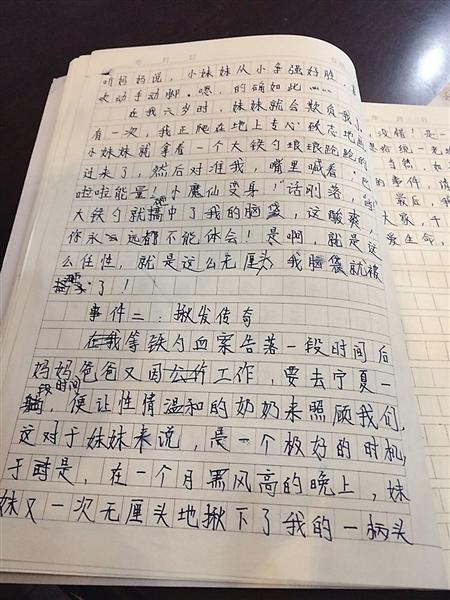 听妈妈说，小妹妹从小争强好胜，喜
欢动手动脚。嗯，的确如此……
在我六岁时，妹妹就会欺负我
有一次，我正爬在地上专心致志地画
小妹妹就拿着一个大铁勺踉踉跄跄的
过来了，然后对准我，嘴里喊着：巴
啦啦能量！小魔仙变身！"话刚落，
大铁勺就搞中了我的脑袋，这酸爽，
你永远都不能体会！是啊，就是这
么任性，就是这么无厘头，我脑袋就被
了！
事件二：揪发传奇
在我等铁勺血案告落一段时间后
妈妈爸爸又因公幹工作，要去宁夏一
段时间，便让性情温和的奶奶来照顾我们，
这对于妹妹来说，是一个极好的时机，
于是，在一个月黑风高的晚上，妹
妹又一次无厘头地揪下了我的一柄头
没错！是一
是给我一无
当然，如
的事件，请
最后，我
大家，千
爱生命，